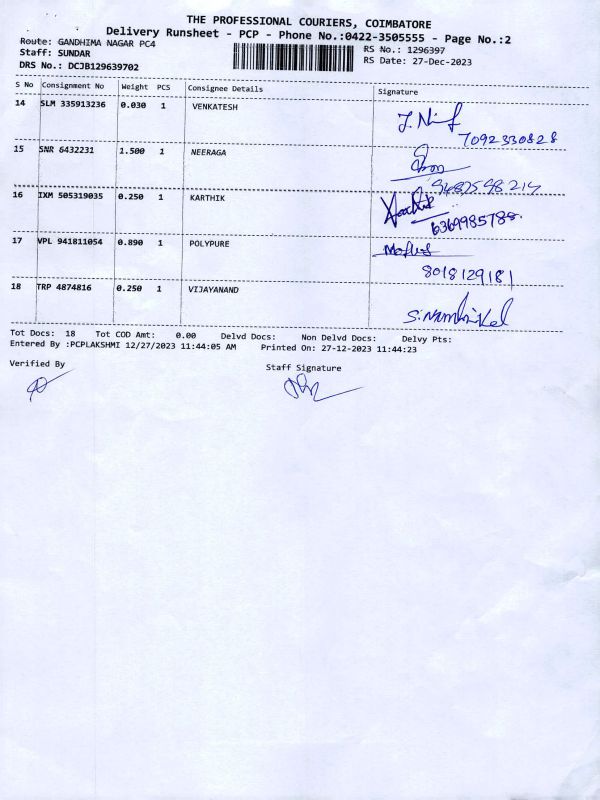 THE PROFESSIONAL COURIERS, COIMBATORE
Delivery Runsheet - PCP - Phone No.:0422-3505555 - Page No.:2
Route: GANDHIMA NAGAR PC4
RS No.: 1296397
Staff: SUNDAR
RS Date: 27-Dec-2023
DRS No.: DCJB129639702
S No Consignment No Weight PCS Consignee Details Signature
14 SLM 335913236 0.030 1 VENKATESH
7092330828
15 SNR 6432231 1.500 1 NEERAGA
16 IXM 505319035 0.250 1 KARTHIK
6369985788
17 VPL 941811054 0.890 1 POLYPURE
8018129181
18 TRP 4874816 0.250 1 VIJAYANAND
Tot Docs: 18 Tot COD Amt: 0.00 Delvd Docs: Non Delvd Docs: Delvy Pts:
Entered By :PCPLAKSHMI 12/27/2023 11:44:05 AM Printed On: 27-12-2023 11:44:23
Verified By
Staff Signature